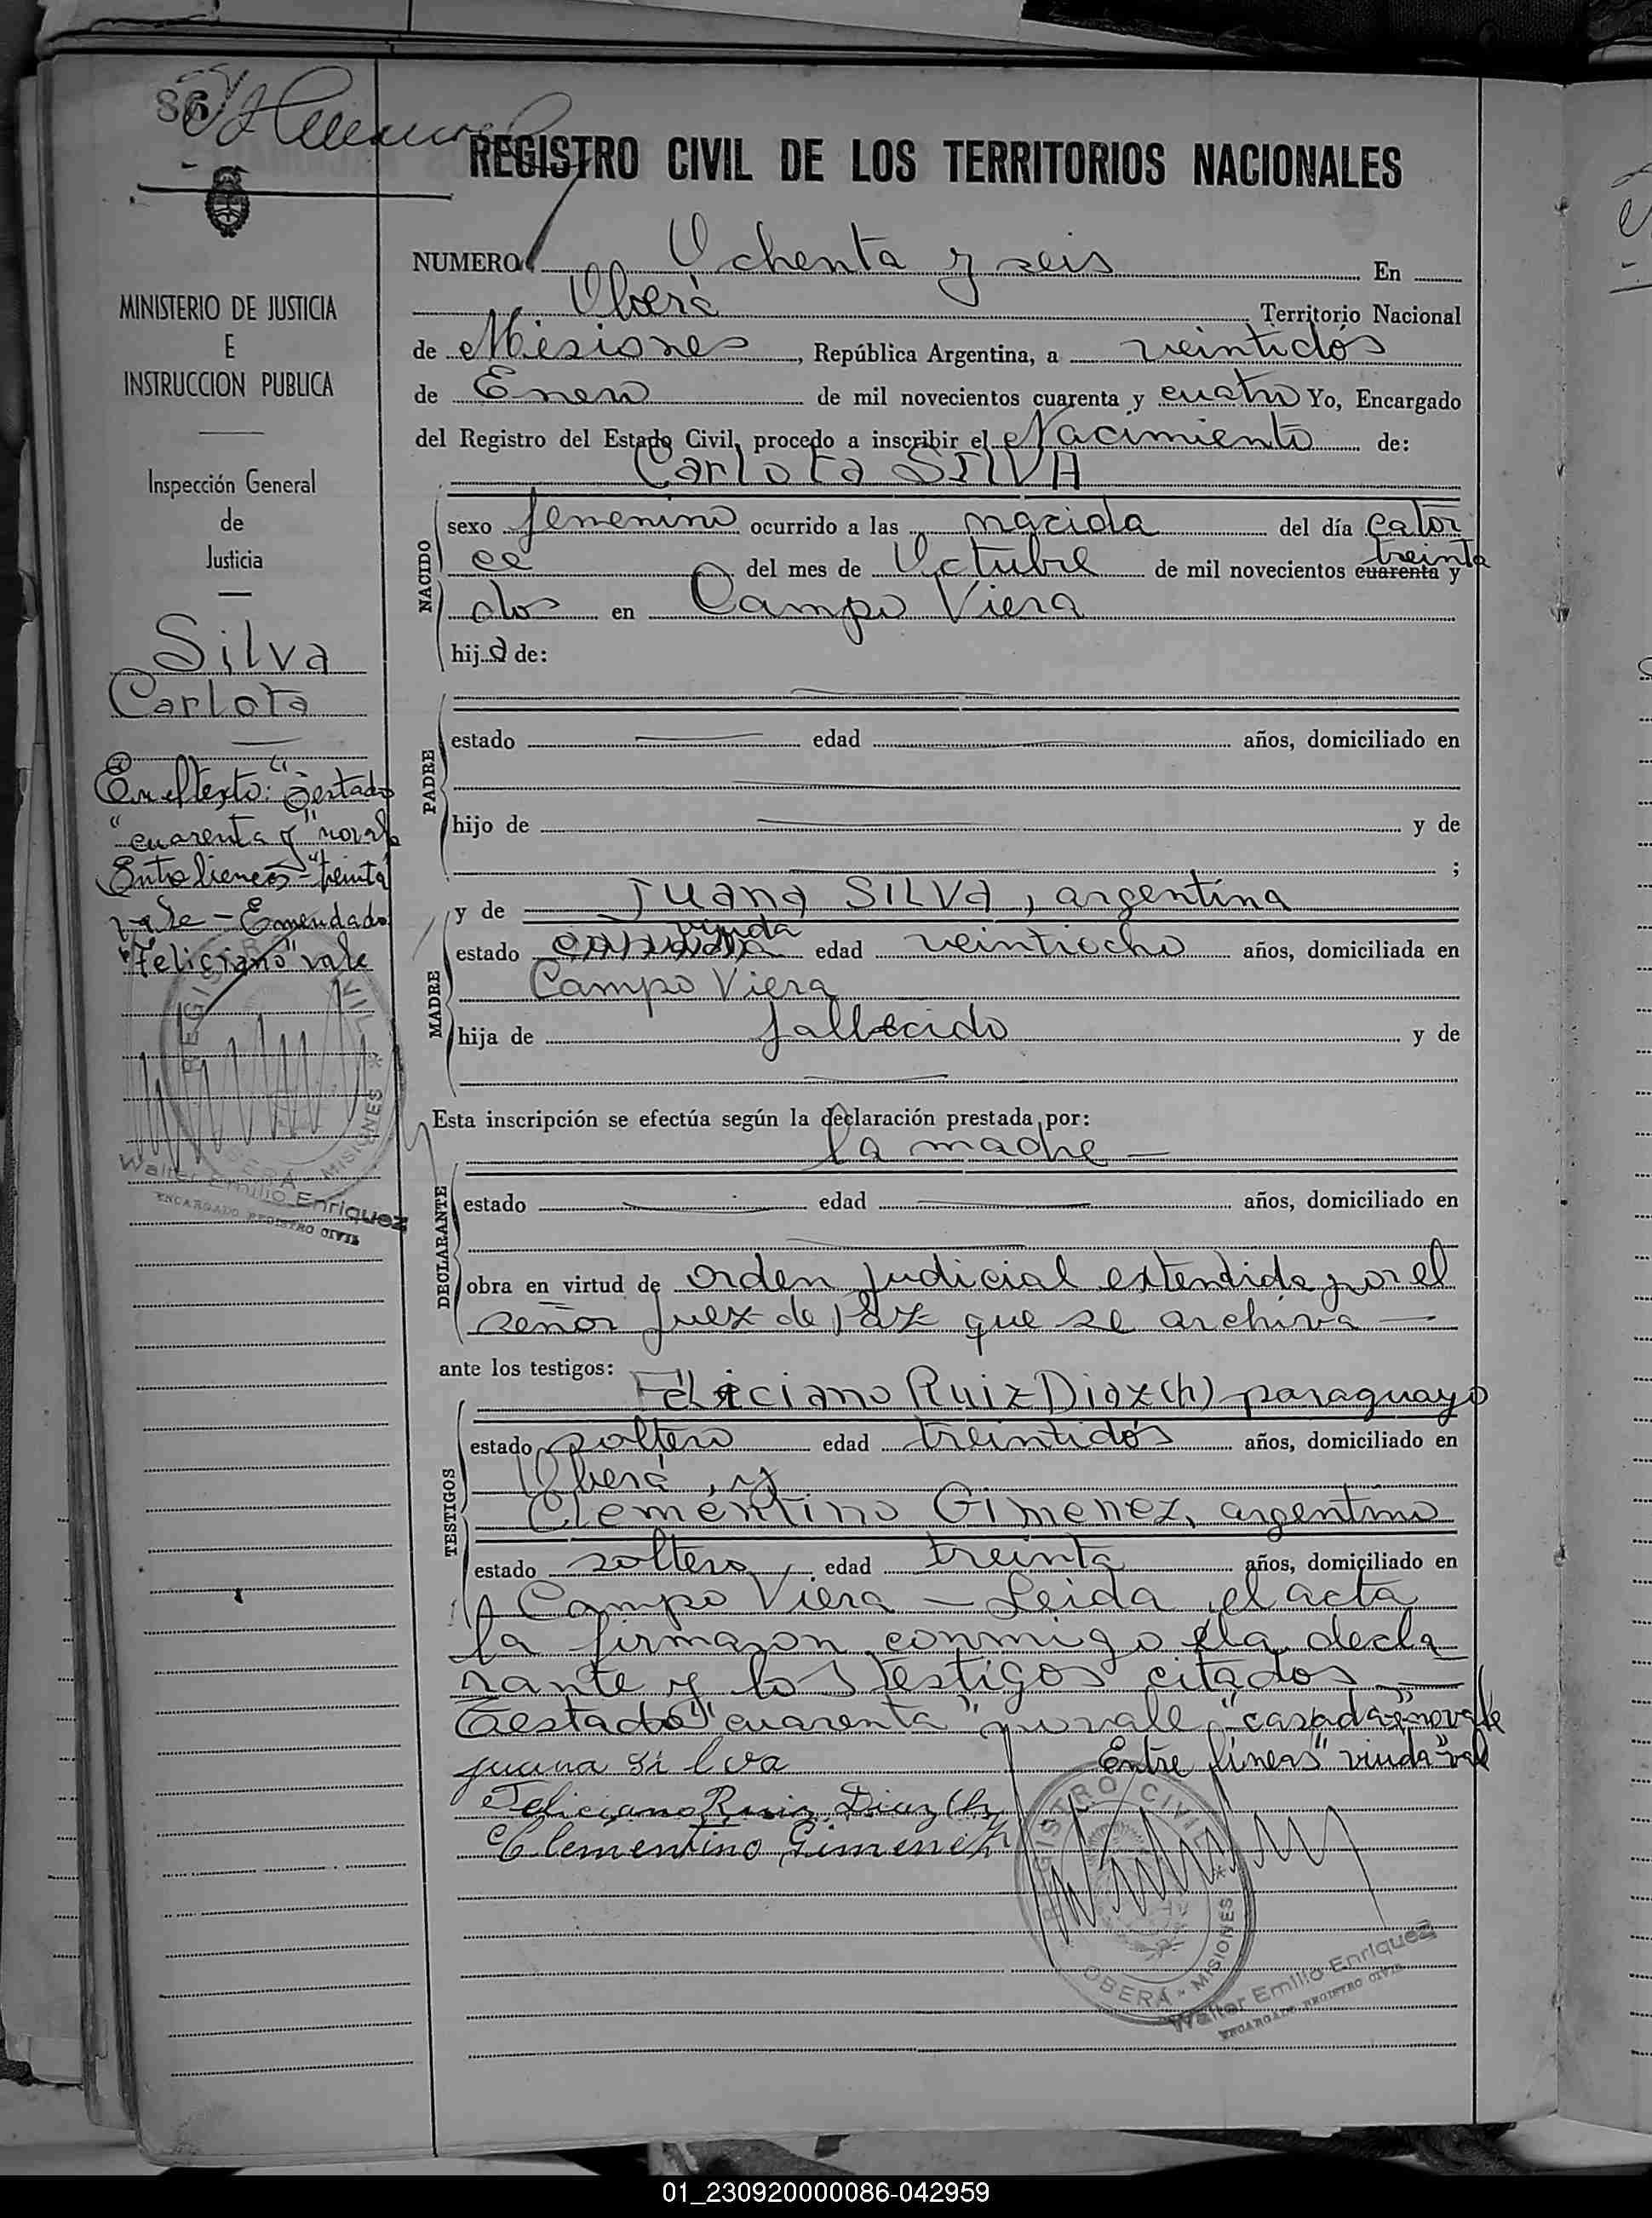 86
REGISTRO CIVIL DE LOS TERRITORIOS NACIONALES
MINISTERIO DE JUSTICIA
E
INSTRUCCION PUBLICA
Inspección General
de
Justicia
Silva
Carlota
En el texto: "Testado
"cuarenta y" no vale
Entre lineas "treinta"
vale - Enmendado
"Feliciano" vale
REGISTRO CIVIL
OBERA - MISIONES
Walter Emilio Enriquez
ENCARGADO REGISTRO CIVIL
NUMERO Ochenta y seis En
Oberá Territorio Nacional
de Misiones, República Argentina, a veintidós
de Enero de mil novecientos cuarenta y cuatro Yo, Encargado
del Registro del Estado Civil, procedo a inscribir el Nacimiento de:
Carlota SILVA
NACIDO
sexo femenino ocurrido a las nacida del día cator
ce del mes de Octubre de mil novecientos cuarenta y treinta
dos en Campo Viera
hija de:
PADRE
estado edad años, domiciliado en
hijo de y de
;
MADRE
y de Juana SILVA, argentina
estado viuda edad veintiocho años, domiciliada en
Campo Viera
hija de fallecido y de
Esta inscripción se efectúa según la declaración prestada por:
la madre -
DECLARANTE
estado edad años, domiciliado en
obra en virtud de orden judicial extendida por el
señor Juez de Paz que se archiva -
ante los testigos:
TESTIGOS
Feliciano Ruiz Diaz (h) paraguayo
estado soltero edad treintidós años, domiciliado en
Oberá, y
Clementino Gimenez, argentino
estado soltero edad treinta años, domiciliado en
Campo Viera - Leida el acta
la firmaron conmigo la decla
rante y los testigos citados -
Testado "cuarenta" no vale, "casada" no vale
Entre lineas "viuda" vale
juana silva
Feliciano Ruiz Diaz (h)
Clementino Gimenez
REGISTRO CIVIL
OBERA - MISIONES
Walter Emilio Enriquez
ENCARGADO REGISTRO CIVIL
01_230920000086-042959